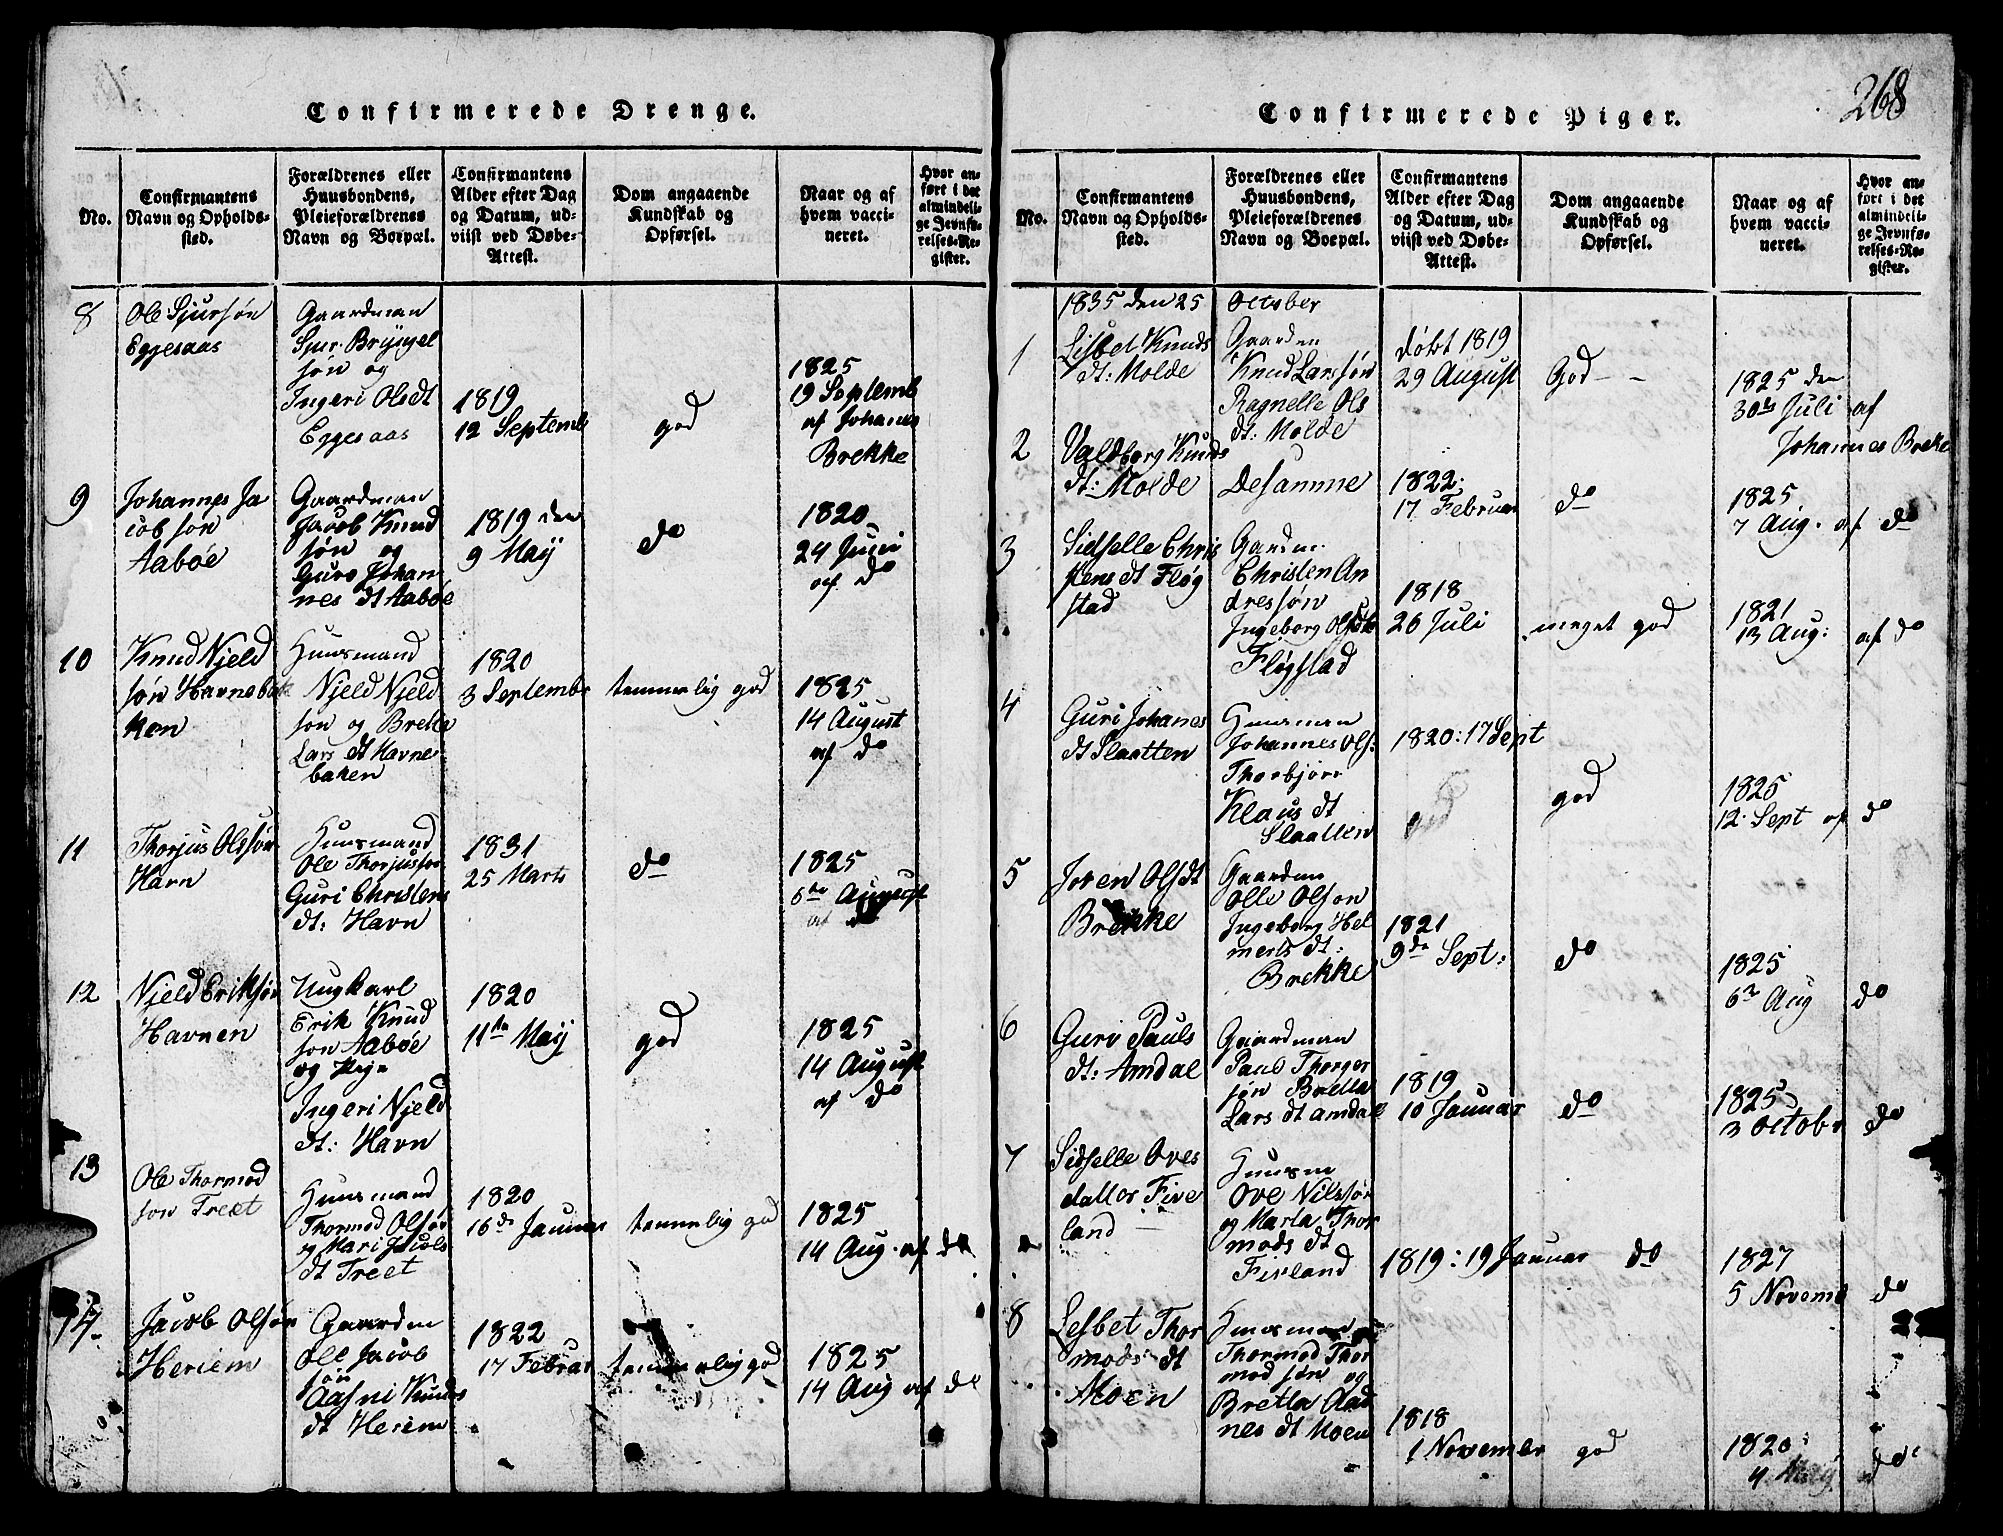 268
Confirmerede Drenge.
No.
Confirmantens
Navn og Opholds-
sted.
Forældrenes eller
Huusbondens,
Pleieforældrenes
Navn og Boepæl.
Confirmantens
Alder efter Dag
og Datum, ud-
viist ved Døbe-
Attest.
Dom angaaende
Kundskab og
Opførsel.
Naar og af
hvem vacci-
neret.
Hvor an-
ført i det
almindeli-
ge Jevnfø-
relses-Re-
gister.
8
Ole Sjursøn
Eggesaas
Gaardman
Sjur Brynjel
søn og
Ingeri Olsdt
Eggesaas
1819
12 Septemb
god
1825
19 Septemb
af Johanes
Brekke
9
Johannes Ja
cob søn
Aaboe
Gaardman
Jacob Knud
søn og
Guro Johan
nes dt Aaboe
1819 den
9 Maÿ
do
1820
24 Juni
af do
10
Knud Njeld
søn Havnebak
ken
Huusmand
Njeld Njeld
søn og Brella
Lars dt Havne
baken
1820
3 Septembr
temmelig god
1825
14 August
af do
11
Thorjus Olssøn
Havn
Huusmand
Ole Thorjussøn
Guri Christens
dt: Havn
1831
25 Marts
do
1825
6te August
af do
12
Njeld Eriksøn
Havnen
Ungkarl
Erik Knud
søn Aaboe
og Pige
Ingeri Njeld
dt: Havn
1820
11te Maÿ
god
1825
14 August
af do
13
Ole Thormod
søn Treet
Huusmand
Thormod Olsøn
og Mari Jacobs
dt Treet
1820
16de Januar
temmelig god
1825
14 Aug. af do
14.
Jacob Olsøn
Heriem
Gaardm
Ole Jacob
søn
Aasni Knuds
dt Heriem
1822
17 Februar
temmelig god
1825
14 Aug af do
Confirmerede Piger.
No.
Confirmantens
Navn og Opholds-
sted.
Forældrenes eller
Huusbondens,
Pleieforældrenes
Navn og Boepæl.
Confirmantens
Alder efter Dag
og Datum, ud-
viist ved Døbe-
Attest.
Dom angaaende
Kundskab og
Opførsel.
Naar og af
hvem vacci-
neret.
Hvor an-
ført i det
almindeli-
ge Jevnfø-
relses-Re-
gister.
1835 den 25 October
1
Lisbet Knuds
dt: Molde
Gaardm
Knud Larssøn
Ragnelle Ols
dt: Molde
døbt 1819
29 August
God - -
1825 den
30te Juli af
Johannes Breke
2
Valdborg Knuds
dt: Molde
Desamme
1822:
17 Februar
do
1825
7 Aug. af do
3
Sidselle Chris
stens dt Fløg
stad
Gardm
Christen An
dressøn
Ingeborg Olsdt
Fløgstad
1818
26 Juli
meget god
1821
13 Aug: af do
4
Guri Johanes
dt Slaatten
Huusman
Johannes Ols:
Thorbjørr
Klaus dt
Slaatten
1820: 17 Sept
god
god
1825
12. Sept af do
5
Joren Olsdt
Brekke
Gaardm
Olle Olson
Ingeborg Hel
merts dt:
Brekke
1821
9de Sept:
do
1825
6te Aug do
6
Guri Pauls
dt: Amdal
Gaardman
Paul Thorger
søn Brella
Lars dt amdal
1819
10 Januar
do
1825
3 Octobr do
7
Sidselle Oves
datter Five
land
Huusm
Ove Nilssør
og Marta Thor
mods dt
Fivland
1819: 19 Januar
do
1827
5 Novemb do
8
Lesbet Thor
mods dt
Moen
Huusman
Thormod Thor
mod søn og
Bretla Aad
nes dt Moen
1818
1 November
god
1820
4 Maÿ do